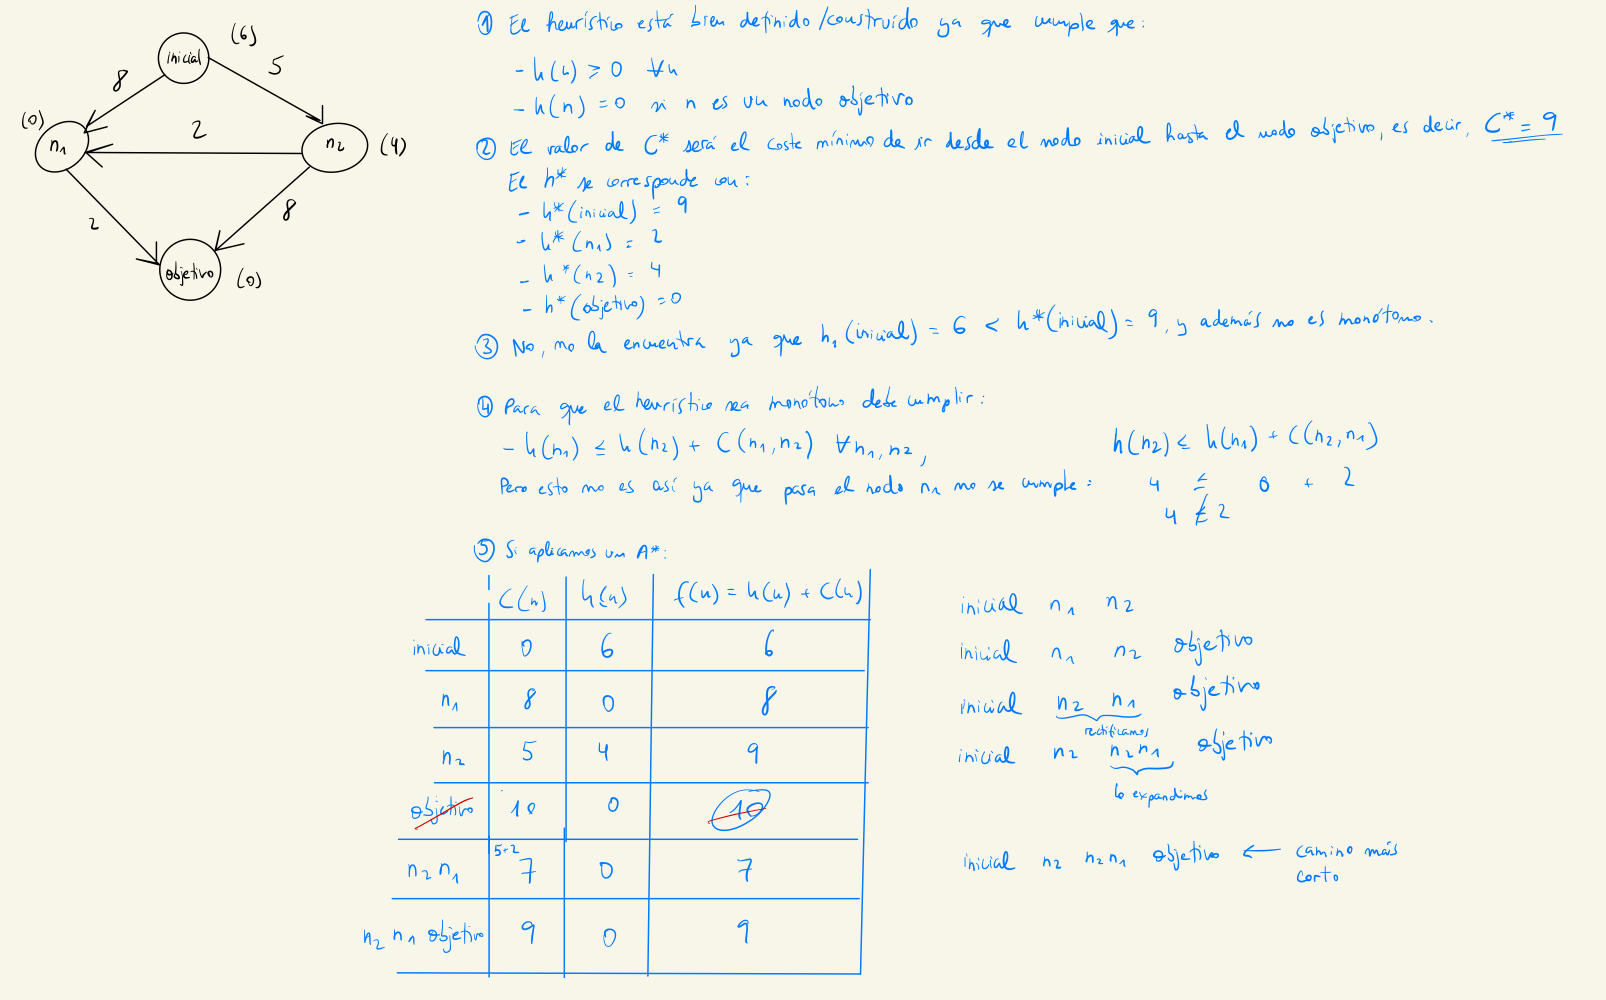 (6)
inicial
8
5
(0)
n₁
2
n₂
(4)
2
8
objetivo
(0)
① El heurístico está bien definido/construído ya que cumple que:
- h(n) ≥ 0 ∀n
- h(n) = 0 si n es un nodo objetivo
② El valor de C* será el coste mínimo de ir desde el nodo inicial hasta el nodo objetivo, es decir, C* = 9
El h* se corresponde con:
- h*(inicial) = 9
- h*(n₁) = 2
- h*(n₂) = 4
- h*(objetivo) = 0
③ No, no la encuentra ya que h₁(inicial) = 6 < h*(inicial) = 9, y además no es monótono.
④ Para que el heurístico sea monótono debe cumplir:
- h(n₁) ≤ h(n₂) + C(n₁,n₂) ∀n₁,n₂,
h(n₂) ≤ h(n₁) + C(n₂,n₁)
Pero esto no es así ya que para el nodo n₁ no se cumple:
4 ≤ 0 + 2
4 ≰ 2
⑤ Si aplicamos un A*:
C(n) h(n) f(n) = h(n) + C(n)
inicial 0 6 6
n₁ 8 0 8
n₂ 5 4 9
objetivo 10 0 10
n₂ n₁ 5+2 7 0 7
n₂ n₁ objetivo 9 0 9
inicial n₁ n₂
inicial n₁ n₂ objetivo
inicial n₂ n₁ objetivo
rectificamos
inicial n₂ n₂n₁ objetivo
lo expandimos
inicial n₂ n₂n₁ objetivo ← camino más
corto